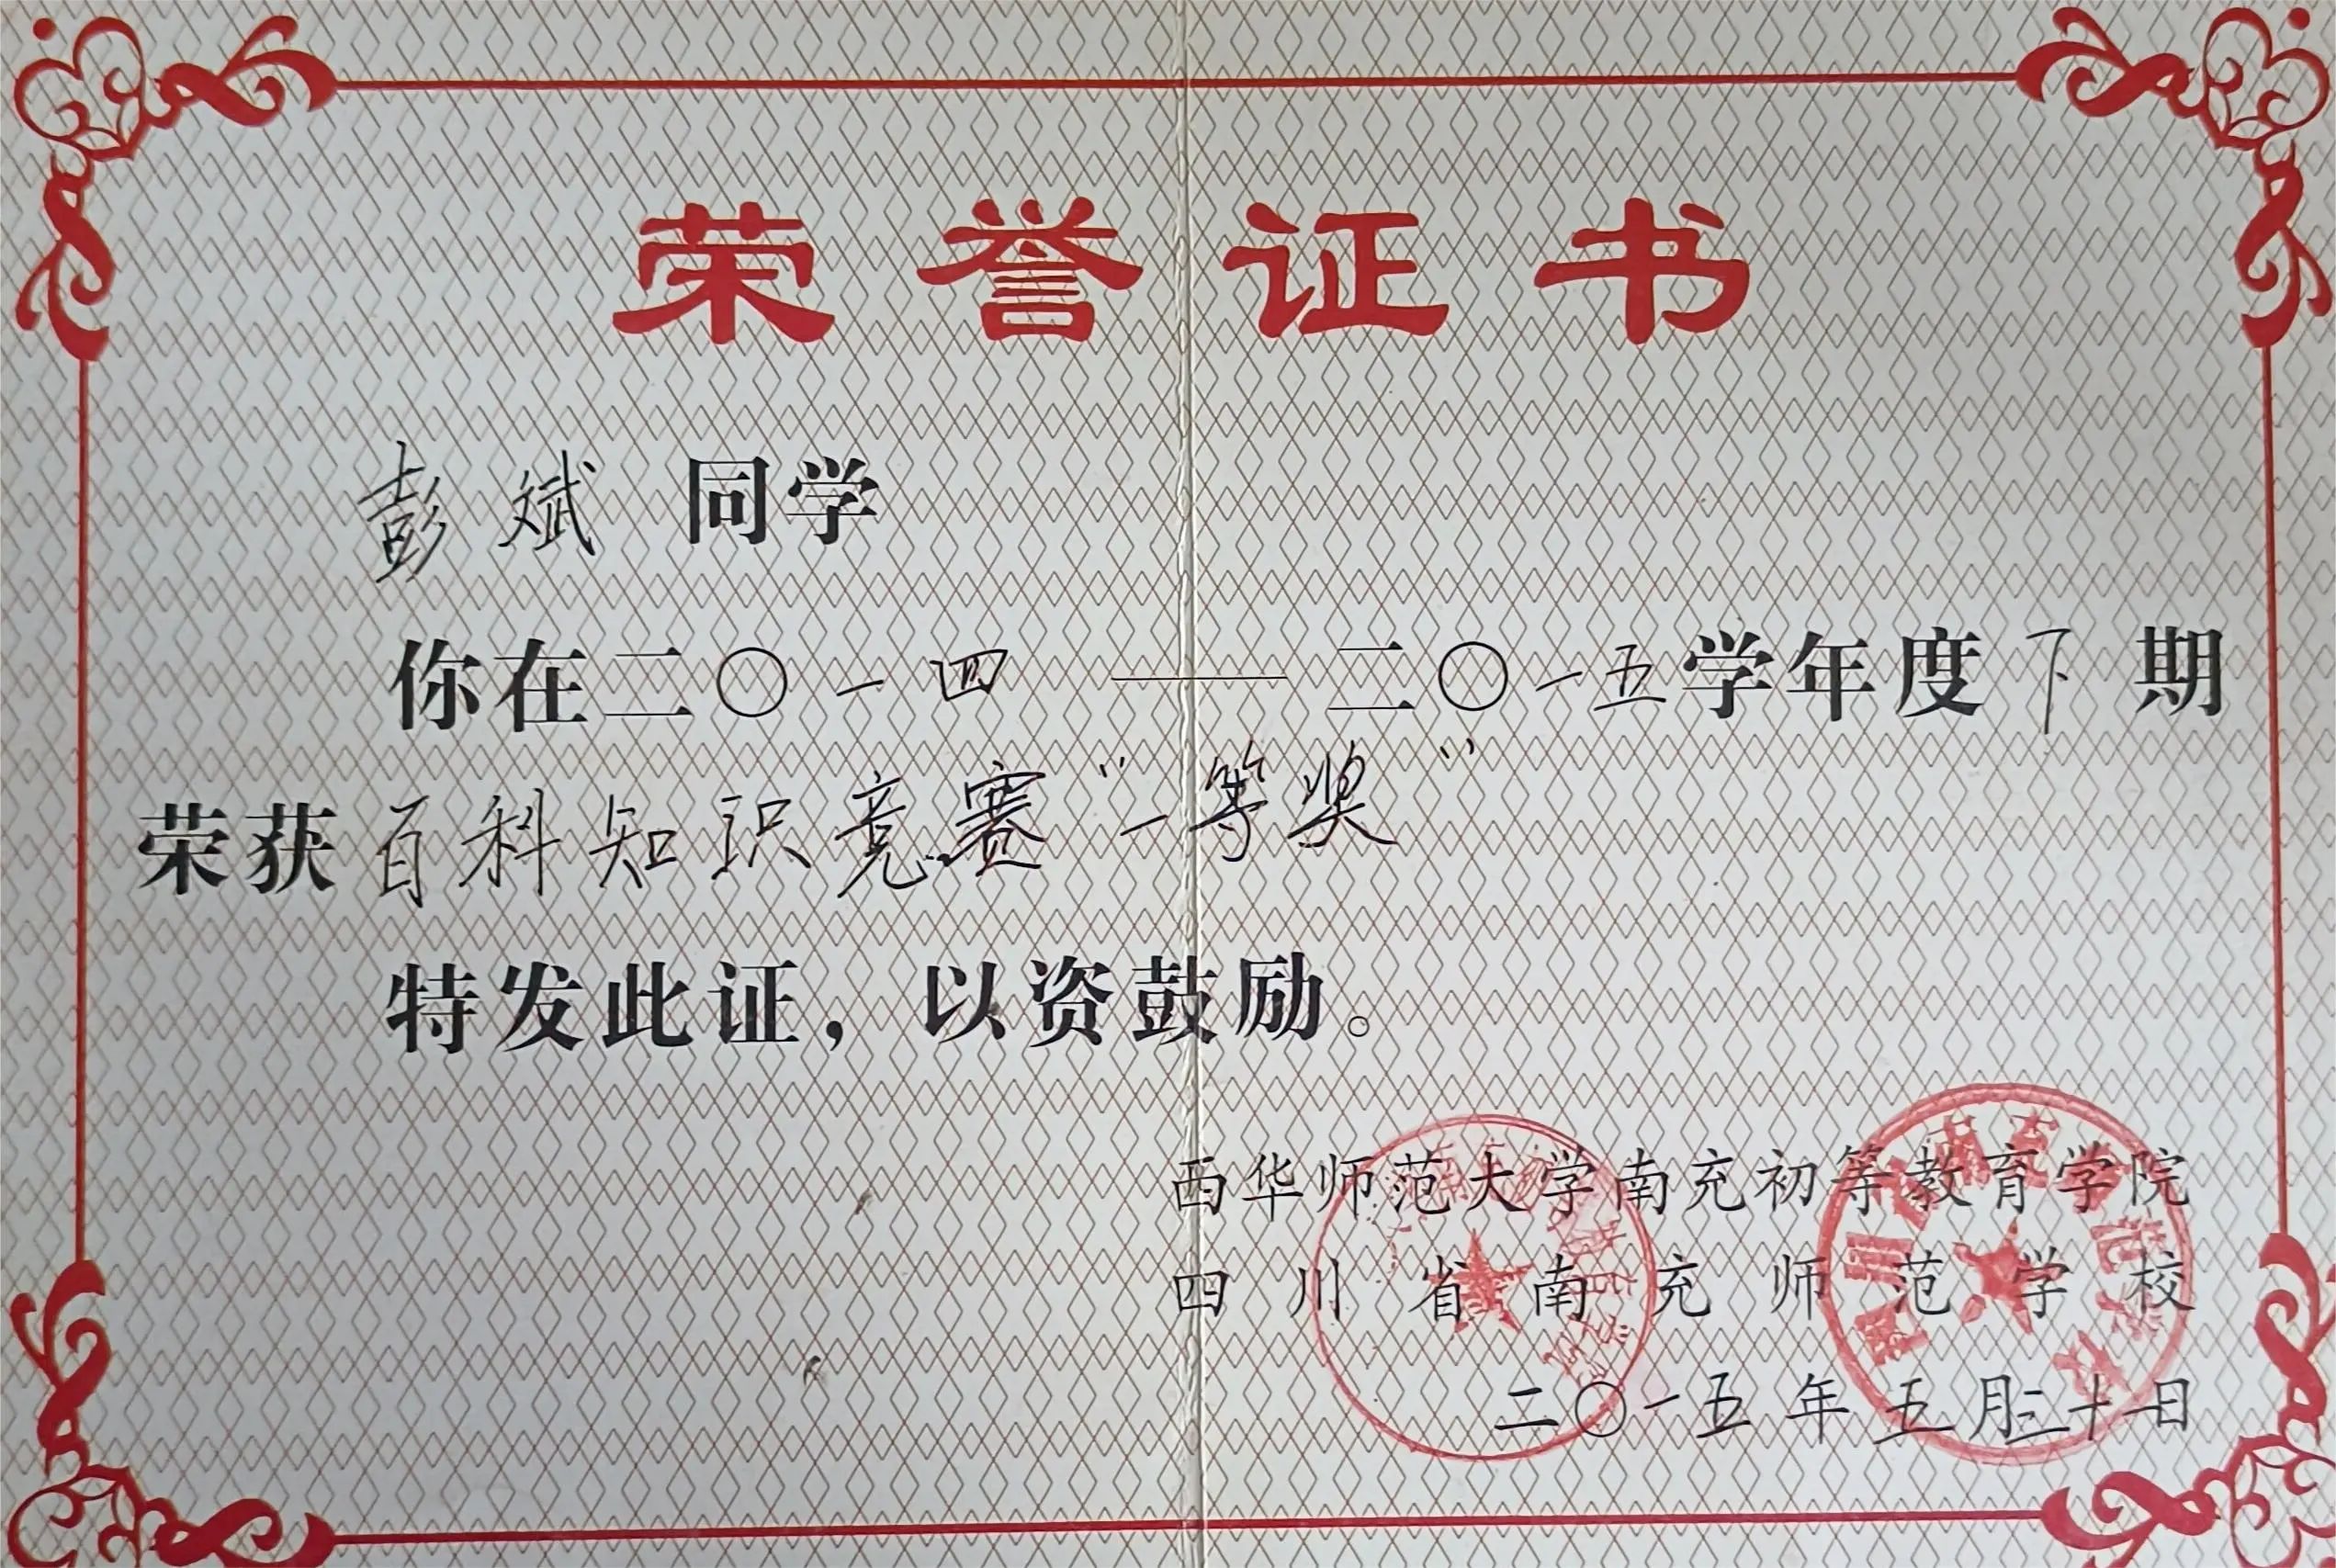 荣誉证书
彭斌 同学
你在二〇一四——二〇一五学年度下期
荣获百科知识竞赛“一等奖”
特发此证，以资鼓励。
西华师范大学南充初等教育学院
四川省南充师范学校
二〇一五年五月三十日